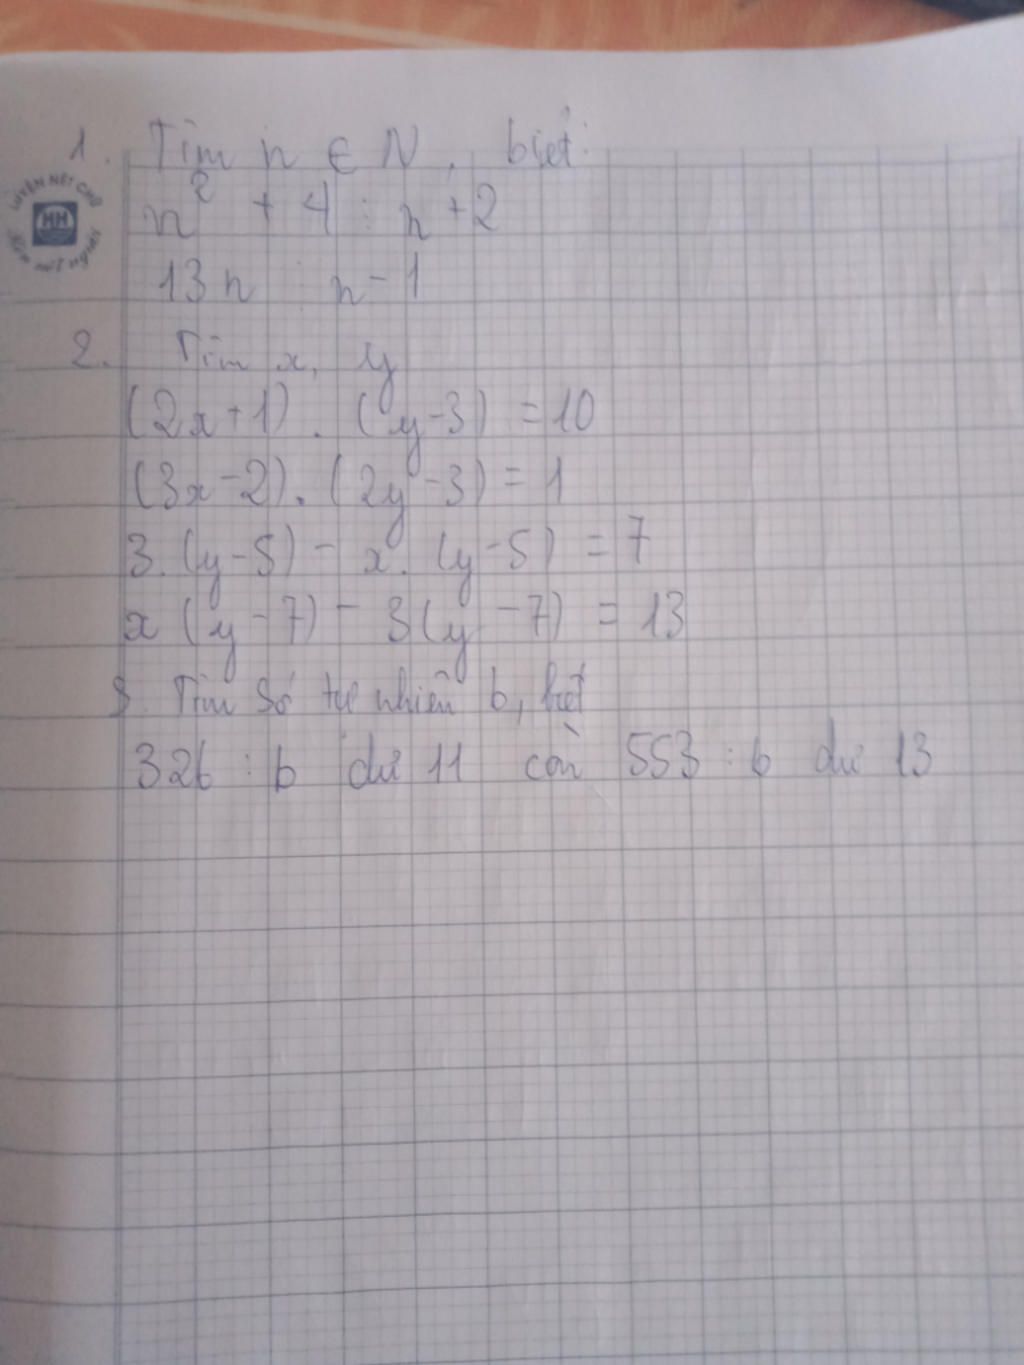 1. Tìm n ∈ N, biết:
LUYỆN NÉT CHỮ
HH
Rèn nết người
n² + 4 ⋮ n + 2
13n ⋮ n - 1
2. Tìm x, y
(2x+1) . (y-3) = 10
(3x-2). (2y-3) = 1
3. (y-5) - x. (y-5) = 7
x (y-7) - 3(y-7) = 13
3. Tìm số tự nhiên b, biết
326 : b dư 11 còn 553 : b dư 13